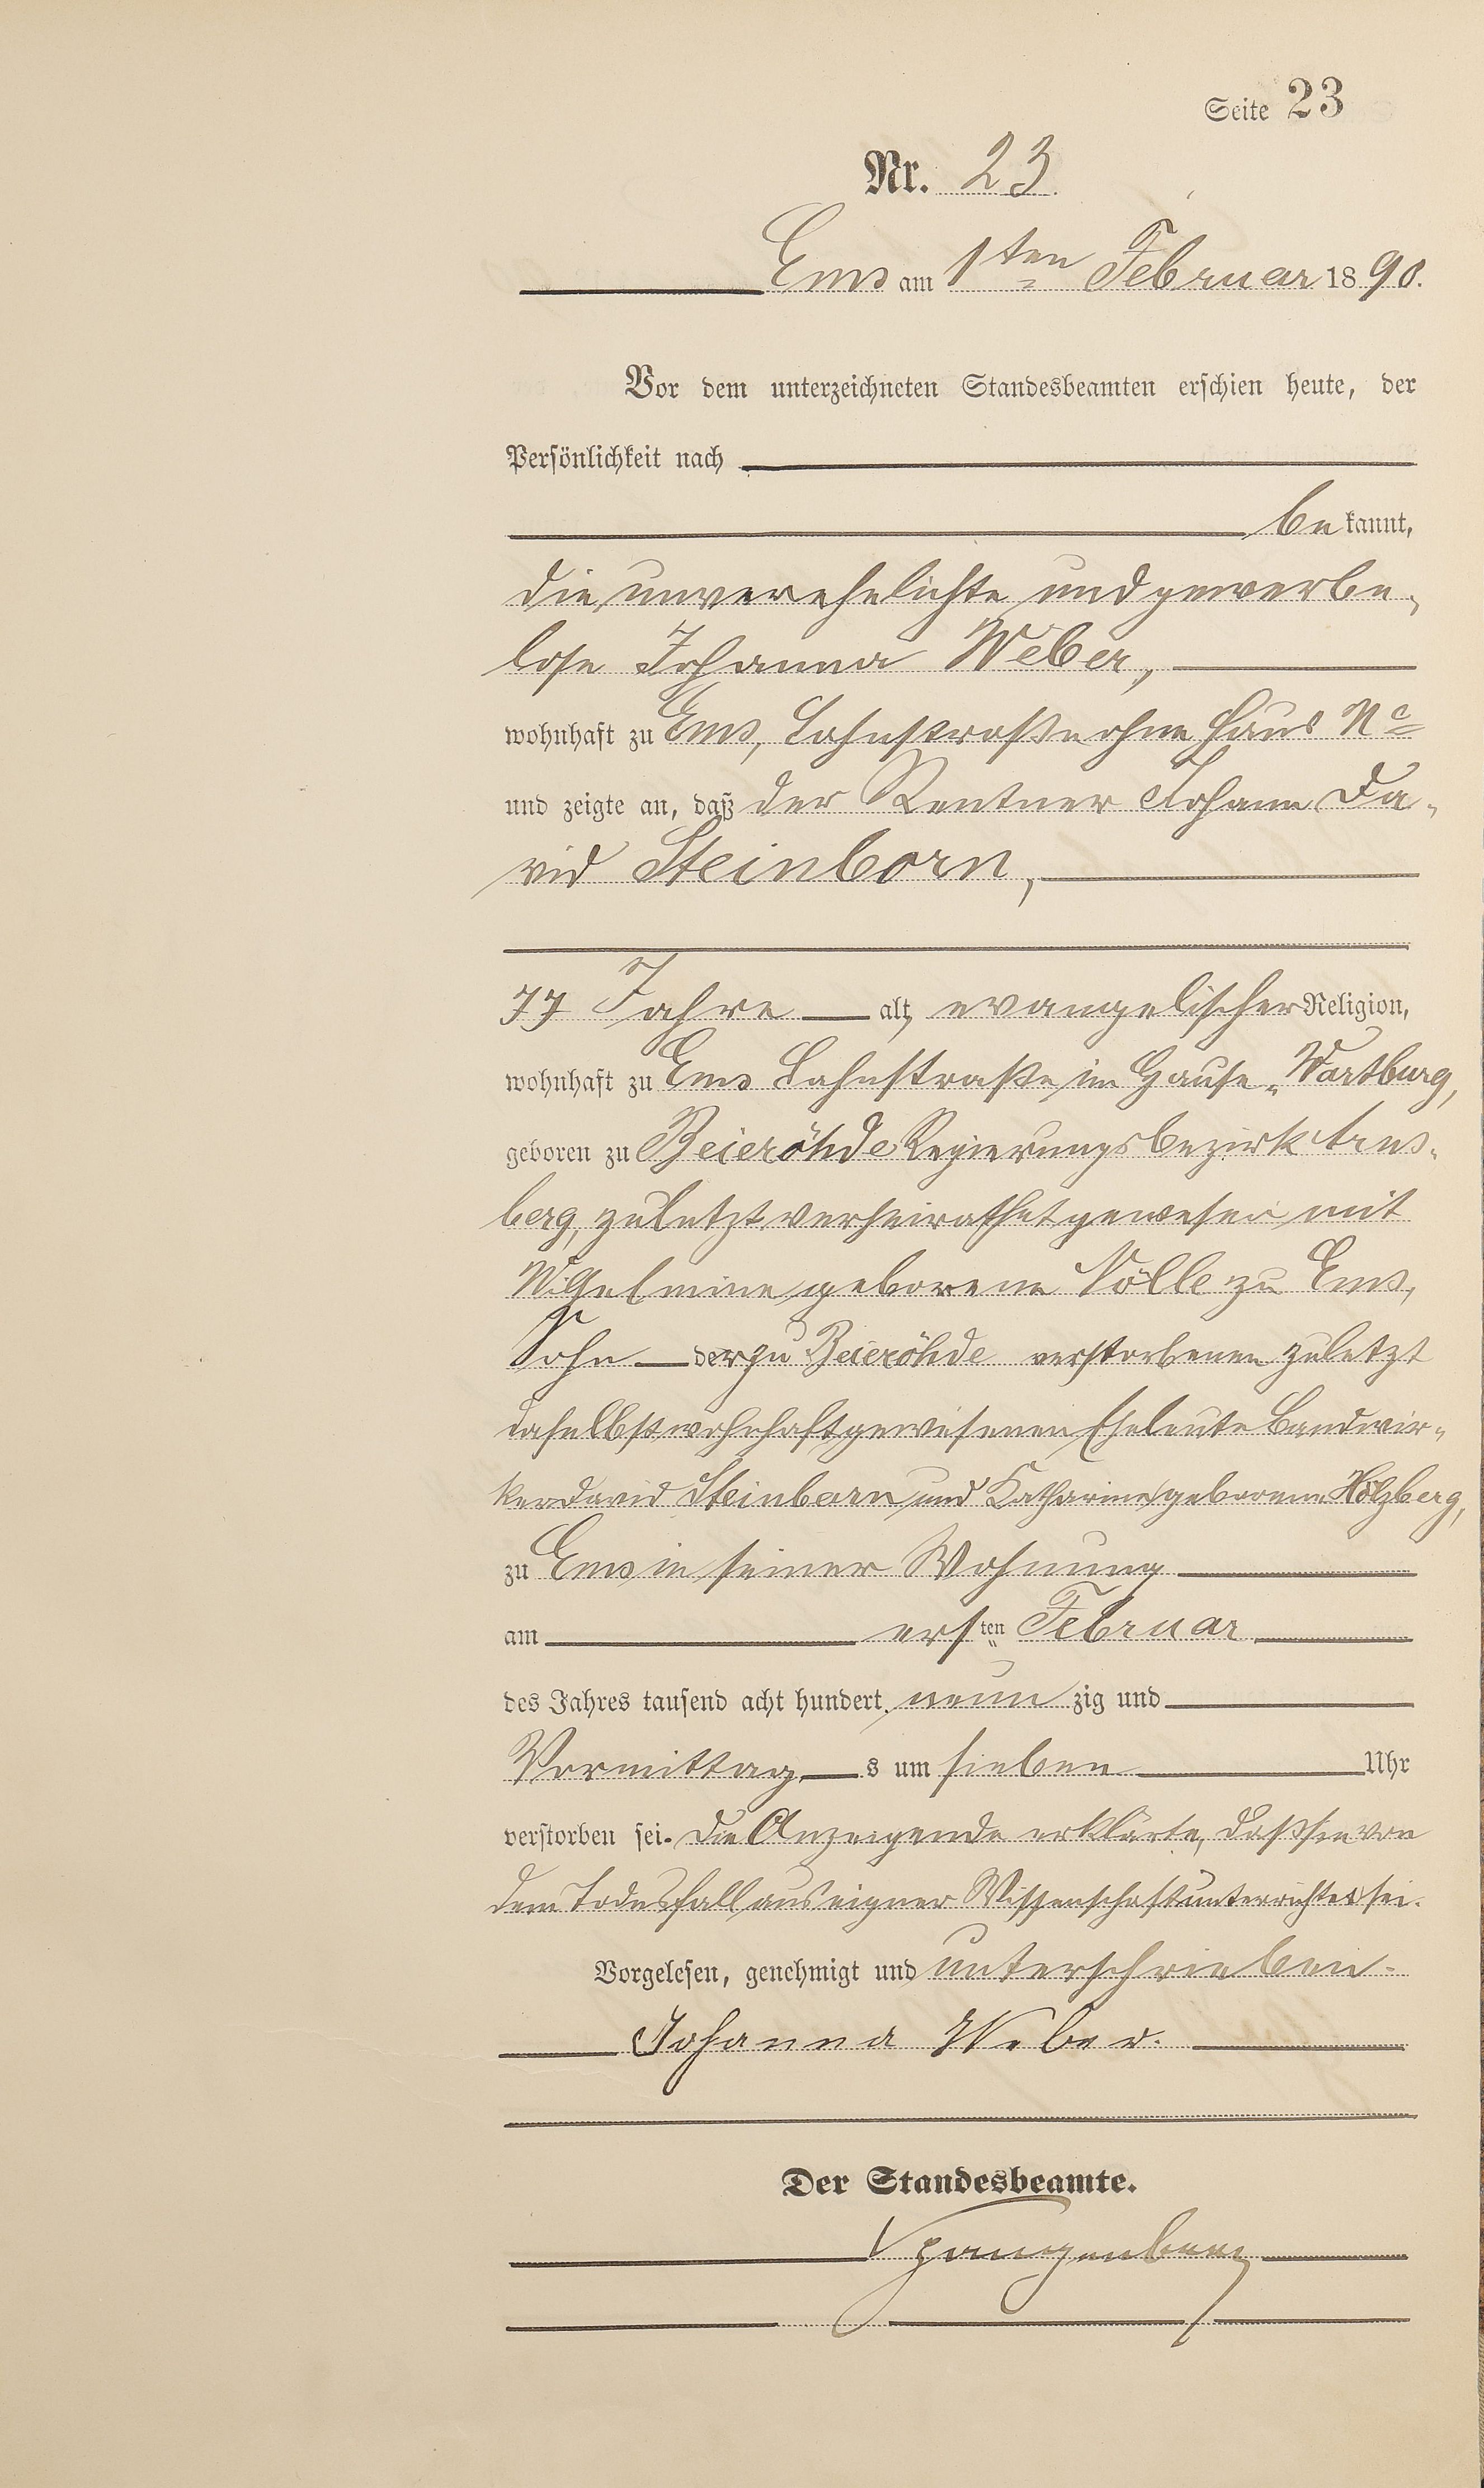 Seite 23
Nr. 23.
Ems am 1ten Februar 1890.
Vor dem unterzeichneten Standesbeamten erschien heute, der
Persönlichkeit nach
bekannt,
die unverehelichte und gewerbe-
lose Johanna Weber,
wohnhaft zu Ems, Lahnstraße ohne Haus No
und zeigte an, daß der Rentner Johann Da-
vid Steinborn,
77 Jahre alt, evangelischer Religion,
wohnhaft zu Ems Lahnstraße im Hause „Wartburg,
geboren zu Beieröhde Regierungsbezirk Arns-
berg, zuletzt verheirathet gewesen mit
Wilhelmine geborene Nölle zu Ems,
Sohn der zu Beieröhde verstorbenen zuletzt
daselbst wohnhaft gewesenen Eheleute Bandwir-
ker David Steinborn und Katharina geborene Holzberg,
zu Ems in seiner Wohnung
am ersten Februar
des Jahres tausend acht hundert neunzig und
Vormittags um sieben Uhr
verstorben sei. Die Anzeigende erklärte, daß sie von
dem Todesfall aus eigner Wissenschaft unterrichtet sei.
Vorgelesen, genehmigt und unterschrieben.
Johanna Weber.
Der Standesbeamte.
Spangenberg